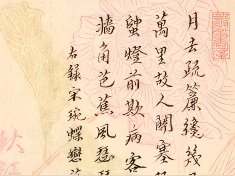 月去疏簾纔
萬里故人關塞
燈前欺病客
牆角芭蕉風瑟
右錄宋琬蝶戀花